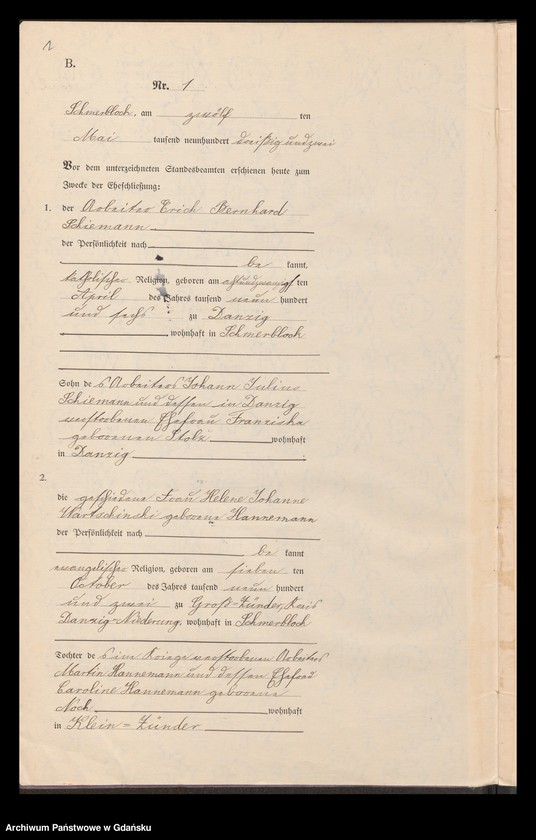 1
B.
Nr. 1
Schmerblock, am zwölf ten
Mai tausend neunhundert dreißig und zwei
Vor dem unterzeichneten Standesbeamten erschienen heute zum
Zwecke der Eheschließung:
1. der Arbeiter Erich Bernhard
Schiemann
der Persönlichkeit nach
be kannt,
katholischer Religion, geboren am achtundzwanzig ten
April des Jahres tausend neun hundert
und sechs zu Danzig
, wohnhaft in Schmerblock
Sohn de s Arbeiters Johann Julius
Schiemann und dessen in Danzig
verstorbenen Ehefrau Franziska
geborenen Stolz wohnhaft
in Danzig
2.
die geschiedene Frau Helene Johanne
Wartschinski geborene Hannemann
der Persönlichkeit nach
be kannt
evangelischer Religion, geboren am sieben ten
October des Jahres tausend neun hundert
und zwei zu Groß-Zünder, Kreis
Danzig-Niederung, wohnhaft in Schmerblock
Tochter de s im Kriege verstorbenen Arbeiters
Martin Hannemann und dessen Ehefrau
Caroline Hannemann geborene
Noch wohnhaft
in Klein-Zünder
Archiwum Państwowe w Gdańsku